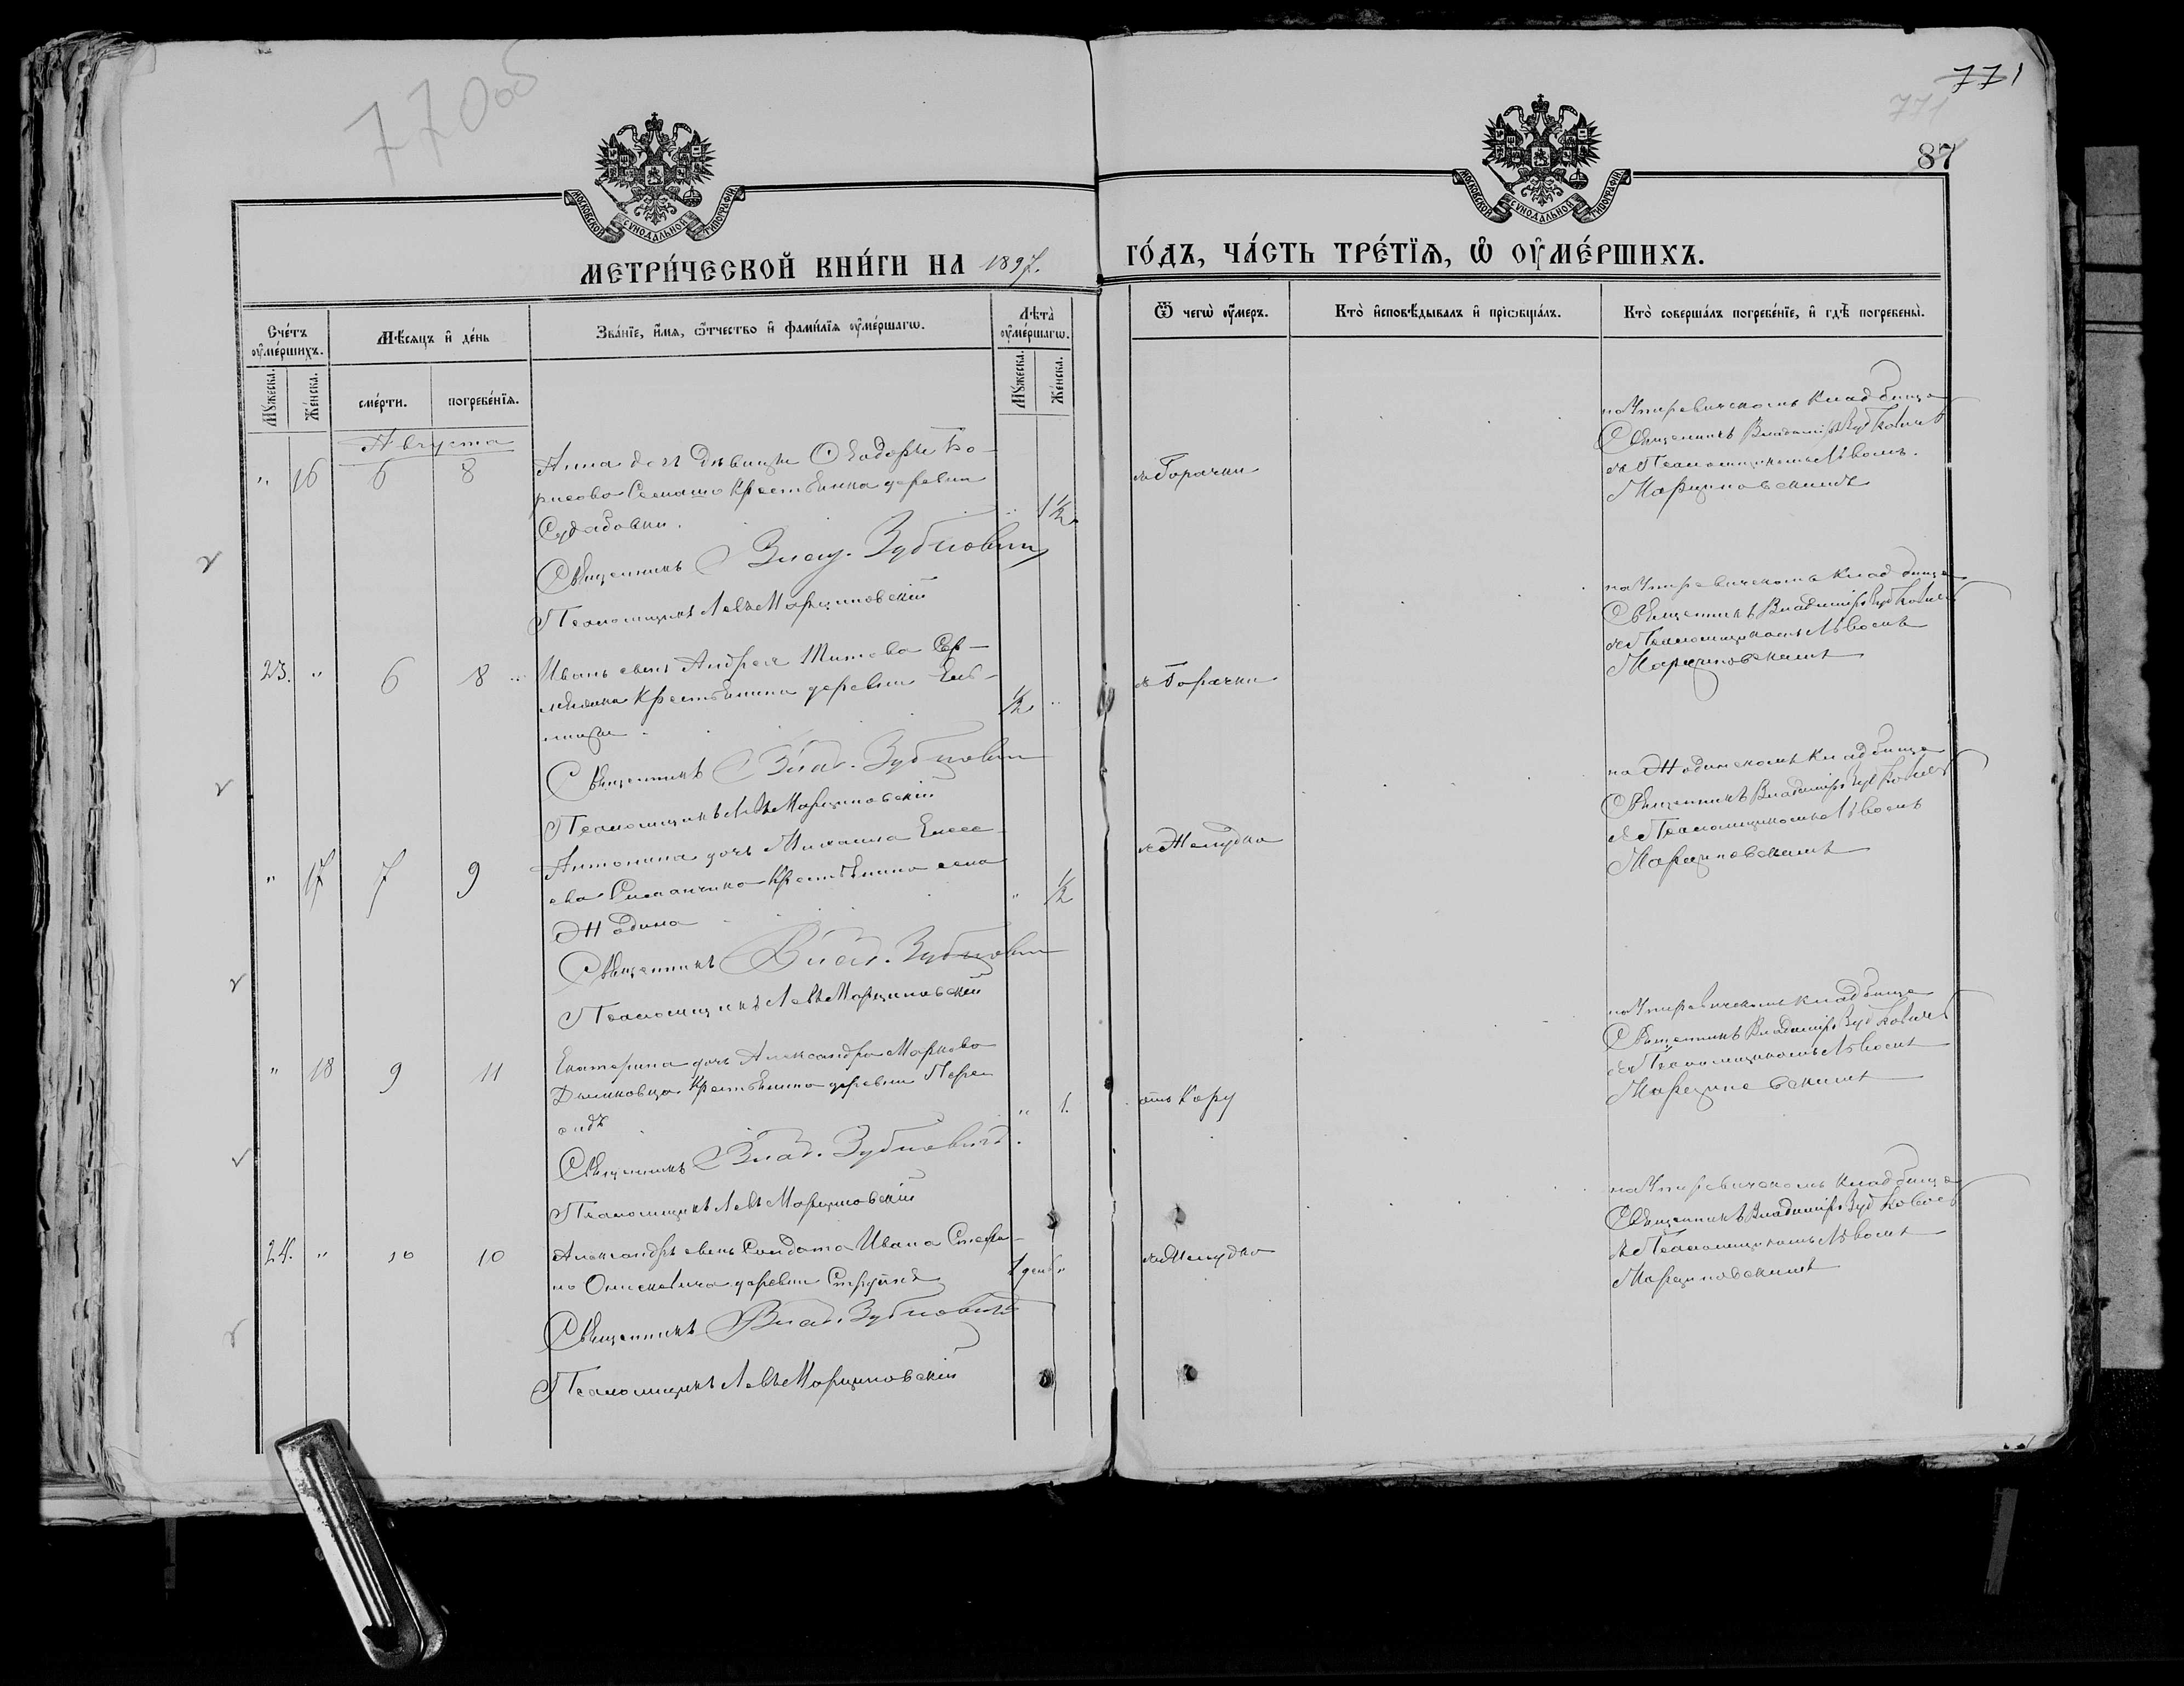 770об
771
771
87
МОСКОВСКОЙ СУНОДАЛЬНОЙ ТИПОГРАФІИ
МОСКОВСКОЙ СУНОДАЛЬНОЙ ТИПОГРАФІИ
МЕТРИ́ЧЕСКОЙ КНИ́ГИ НА 1897.
ГО́ДЪ, ЧА́СТЬ ТРЕ́ТЇѦ, Ѡ҆ ОУ҆МЕ́РШИХЪ.
Сче́тъ оу҆ме́ршихъ.
Мꙋ́жеска.
Же́нска.
Мѣ́сяцъ и҆ де́нь
сме́рти.
погребе́нїѧ.
Зва́нїе, и҆́мѧ, ѻ҆́тчество и҆ фами́лїѧ оу҆ме́ршагѡ.
Лѣ́та оу҆ме́ршагѡ.
Мꙋ́жеска.
Же́нска.
Ѿ чегѡ̀ оу҆́меръ.
Кто̀ и҆сповѣ́дывалъ и҆ прїѡбща́лъ.
Кто̀ соверша́лъ погребе́нїе, и҆ гдѣ̀ погребены̀.
Августа
" 16 6 8
Анна дочь девицы Ѳеодоры Бо-
рисова Семашко Крестьянка деревни
Судобовки.
" 1½
Священникъ Влад. Зубковичъ
Псаломщикъ Левъ Марциновскій
отъ Горячки
на Упиревическомъ кладбище
Священникъ Владиміръ Зубковичъ
съ Псаломщикомъ Львомъ
Марциновскимъ
23. " 6 8
Иванъ сынъ Андрея Титова
Крестьянина деревни
½ "
Священникъ Влад. Зубковичъ
Псаломщикъ Левъ Марциновскій
отъ Горячки
на Упиревическомъ кладбище
Священникъ Владиміръ Зубковичъ
съ Псаломщикомъ Львомъ
Марциновскимъ
" 17 7 9
Антонина дочь Михаила Елисе-
ева Симанчика Крестьянина села
Жодина
" ½
Священникъ Влад. Зубковичъ
Псаломщикъ Левъ Марциновскій
отъ Желудка
на Жодинскомъ кладбище
Священникъ Владиміръ Зубковичъ
съ Псаломщикомъ Львомъ
Марциновскимъ
" 18 9 11
Екатерина дочь Александра Маркова
Дымковца Крестьянина деревни Пере-
садъ
" 1.
Священникъ Влад. Зубковичъ.
Псаломщикъ Левъ Марциновскій
отъ Кору
на Упиревическомъ кладбище
Священникъ Владиміръ Зубковичъ
съ Псаломщикомъ Львомъ
Марциновскимъ
24. " 10 10
Александръ сынъ Солдата Ивана Стефа-
но Онискевича деревни Струпня
1 день "
Священникъ Влад. Зубковичъ
Псаломщикъ Левъ Марциновскій
отъ Желудка
на Упиревическомъ кладбище
Священникъ Владиміръ Зубковичъ
съ Псаломщикомъ Львомъ
Марциновскимъ